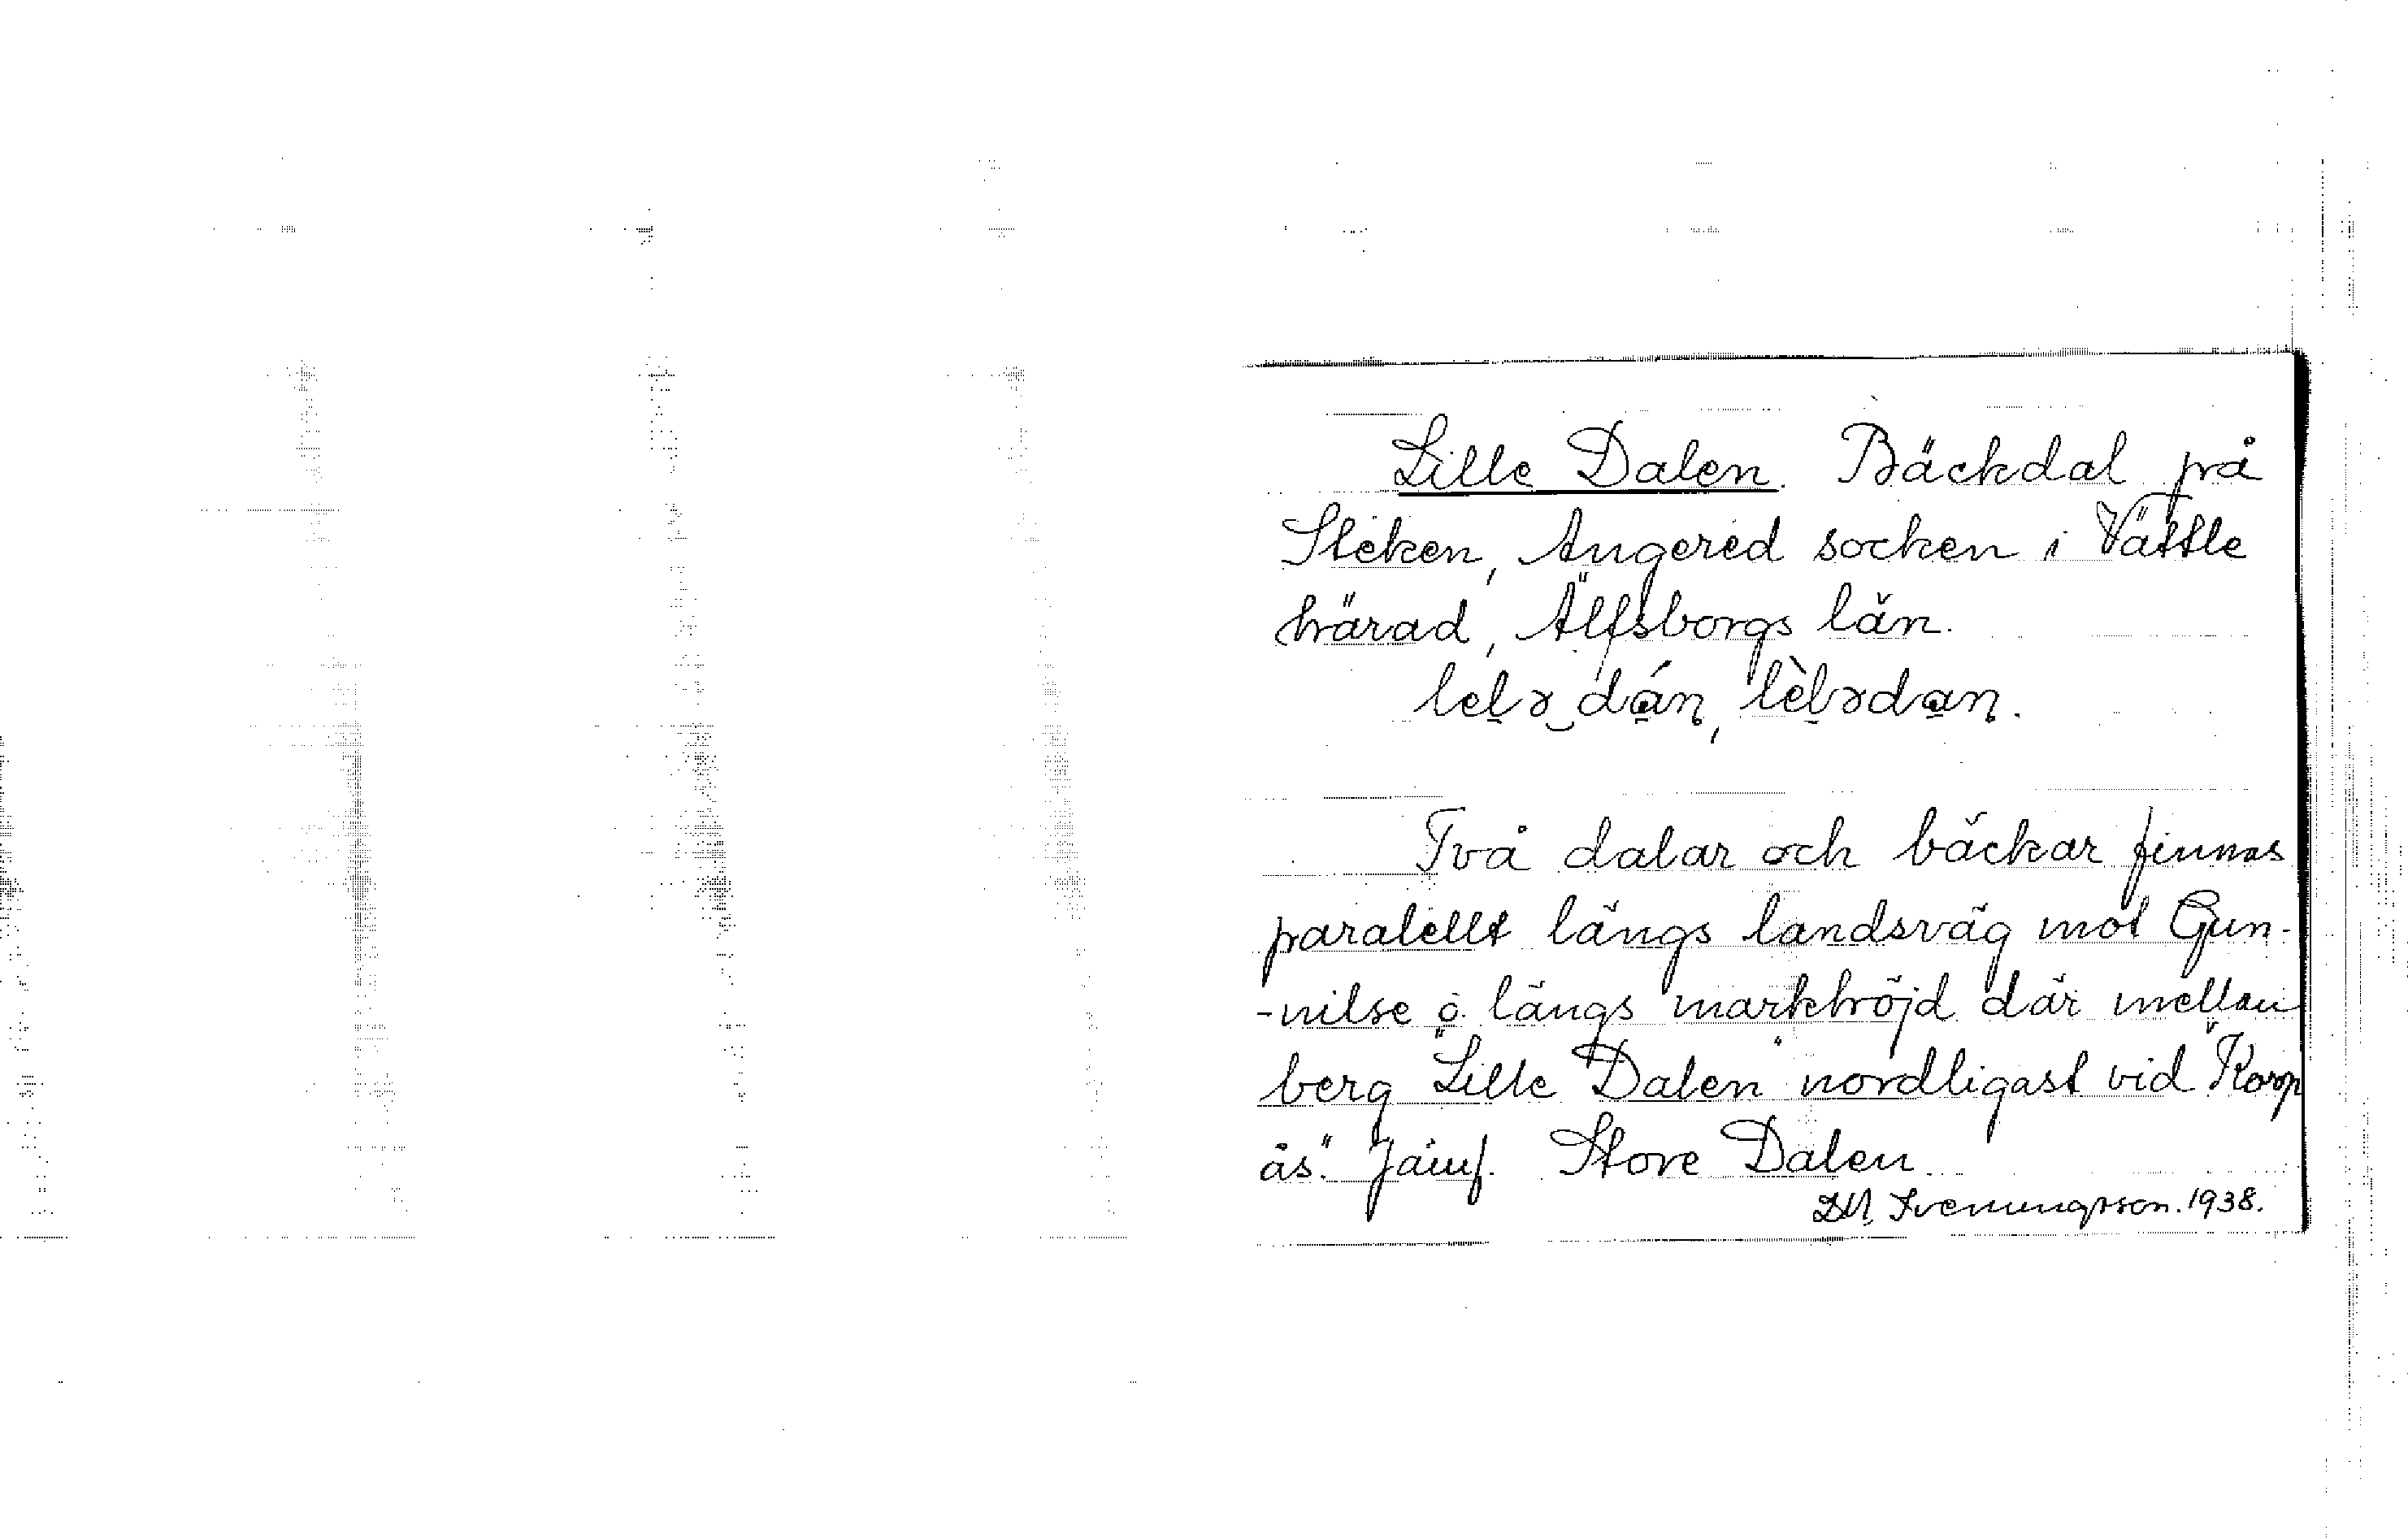 Lille Dalen. Bäckdal på
Steken, Angered socken i Vättle
härad, Älfsborgs län.
lelə dán, lèlədan.
Två dalar och bäckar finnas
paralellt längs landsväg mot Gun-
-nilse o. längs markhöjd där mellan
berg "Lille Dalen" nordligast vid "Korp
ås". Jämf. Store Dalen
Svenungsson. 1938.